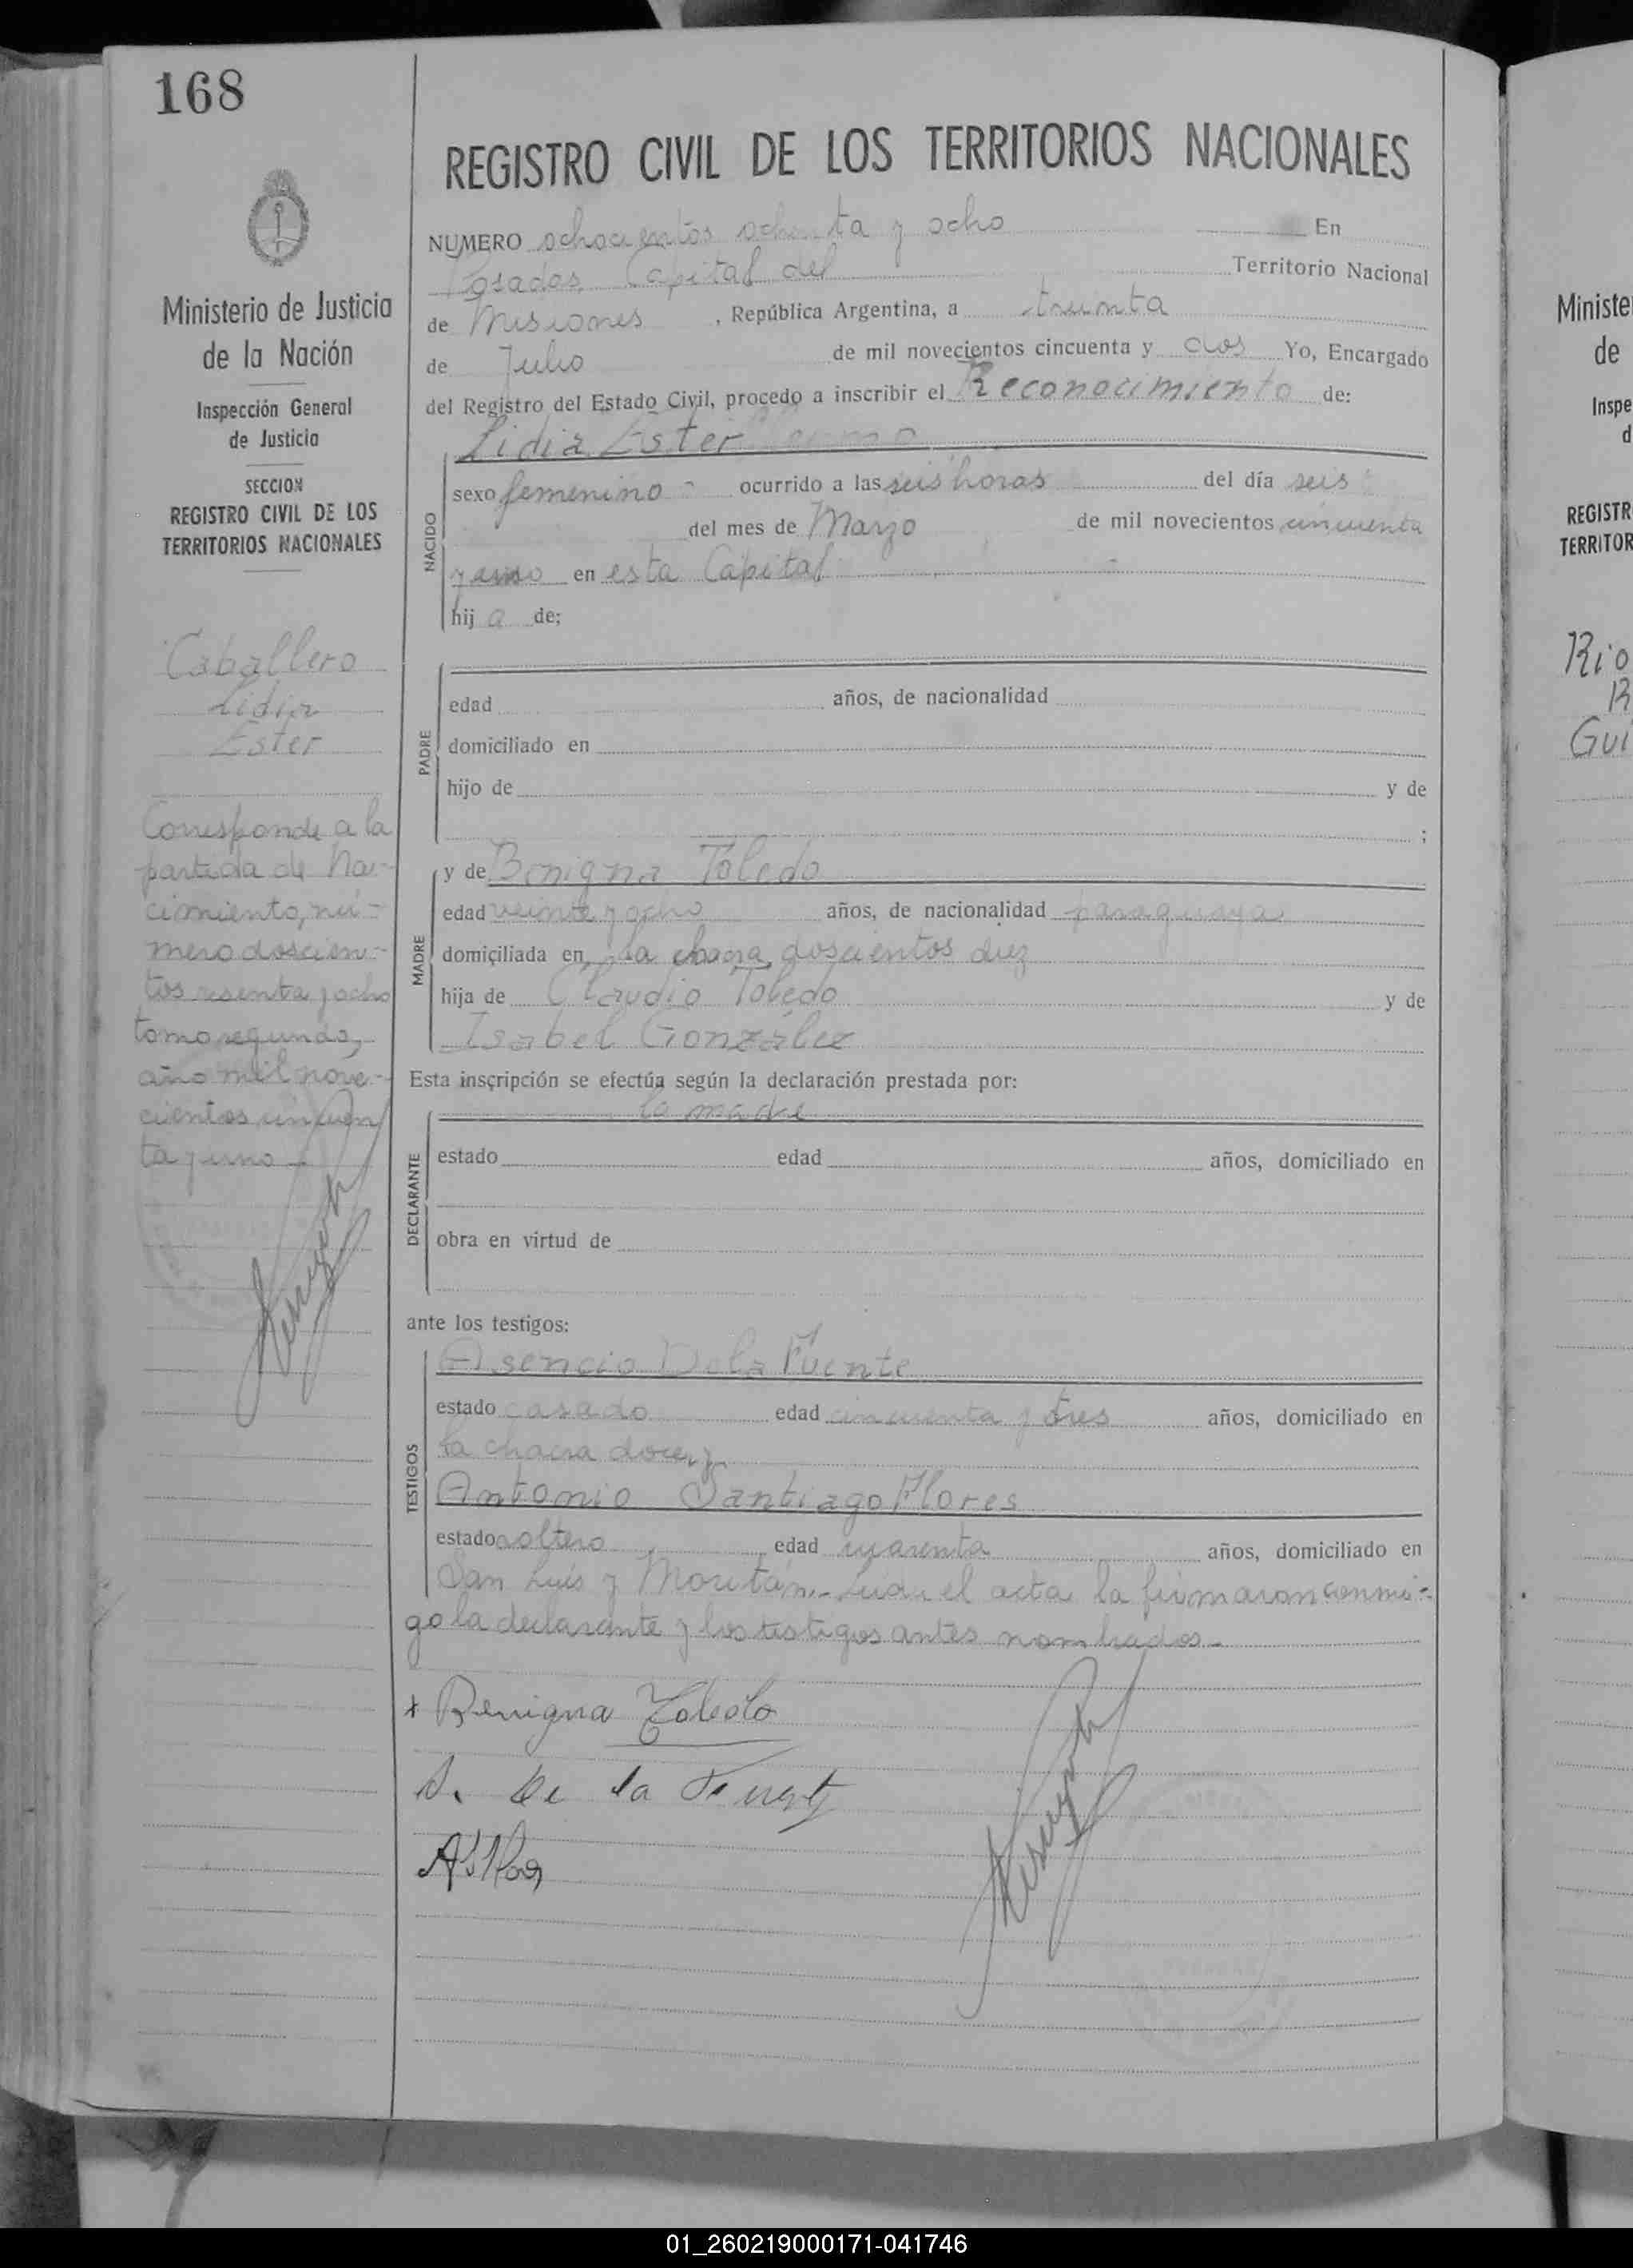 168
REGISTRO CIVIL DE LOS TERRITORIOS NACIONALES
Ministerio de Justicia
de la Nación
Inspección General
de Justicia
SECCION
REGISTRO CIVIL DE LOS
TERRITORIOS NACIONALES
Caballero
Lidia
Ester
Corresponde a la
partida de Na-
cimiento, nú-
mero doscien-
tos sesenta y ocho
tomo segundo,
año mil nove-
cientos cincuen
ta y uno.-
NUMERO ochocientos ochenta y ocho En
Posadas, Capital del Territorio Nacional
de Misiones , República Argentina, a treinta
de Julio de mil novecientos cincuenta y dos Yo, Encargado
del Registro del Estado Civil, procedo a inscribir el Reconocimiento de:
Lidia Ester
NACIDO
sexo femenino - ocurrido a las seis horas del día seis
del mes de Marzo de mil novecientos cincuenta
y uno en esta Capital
hij a de;
PADRE
edad años, de nacionalidad
domiciliado en
hijo de y de
;
MADRE
y de Benigna Toledo
edad veinte y ocho años, de nacionalidad paraguaya
domiciliada en la chacra doscientos diez
hija de Claudio Toledo y de
Isabel González
Esta inscripción se efectúa según la declaración prestada por:
la madre
DECLARANTE
estado edad años, domiciliado en
obra en virtud de
ante los testigos:
TESTIGOS
Asencio De la Fuente
estado casado edad cincuenta y tres años, domiciliado en
la chacra doce, y
Antonio Santiago Flores
estado soltero edad cuarenta años, domiciliado en
San Luis y Moritán.- Leida el acta la firmaron conmi-
go la declarante y los testigos antes nombrados.-
x Benigna Toledo
A. De la Fuente
A S Flores
Ministe
de
Inspe
d
REGISTR
TERRITOR
Rio
R
Gui
01_260219000171-041746